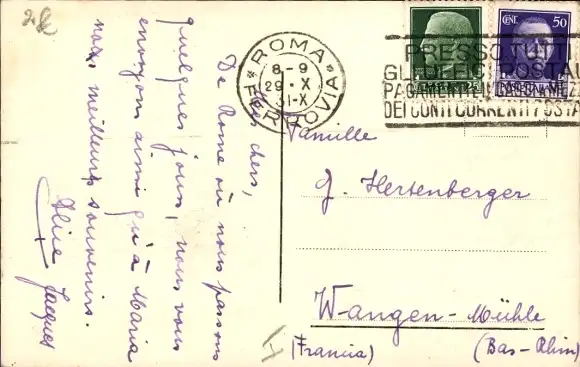 Mes chers,
De Rome où nous passons
quelques jours, nous vous
envoyons ainsi qu'à Maria
nos meilleurs souvenirs.
Jacques
ROMA
8-9
29 · X
31-X
FERROVIA
CENT. 50
PRESSO TUTTI
GLI UFFICI POSTALI
PAGAMENTI E
DEI CONTI CORRENTI POSTA
Famille
J. Hertenberger
Wangen-Mühle
(Francia)
(Bas-Rhin)